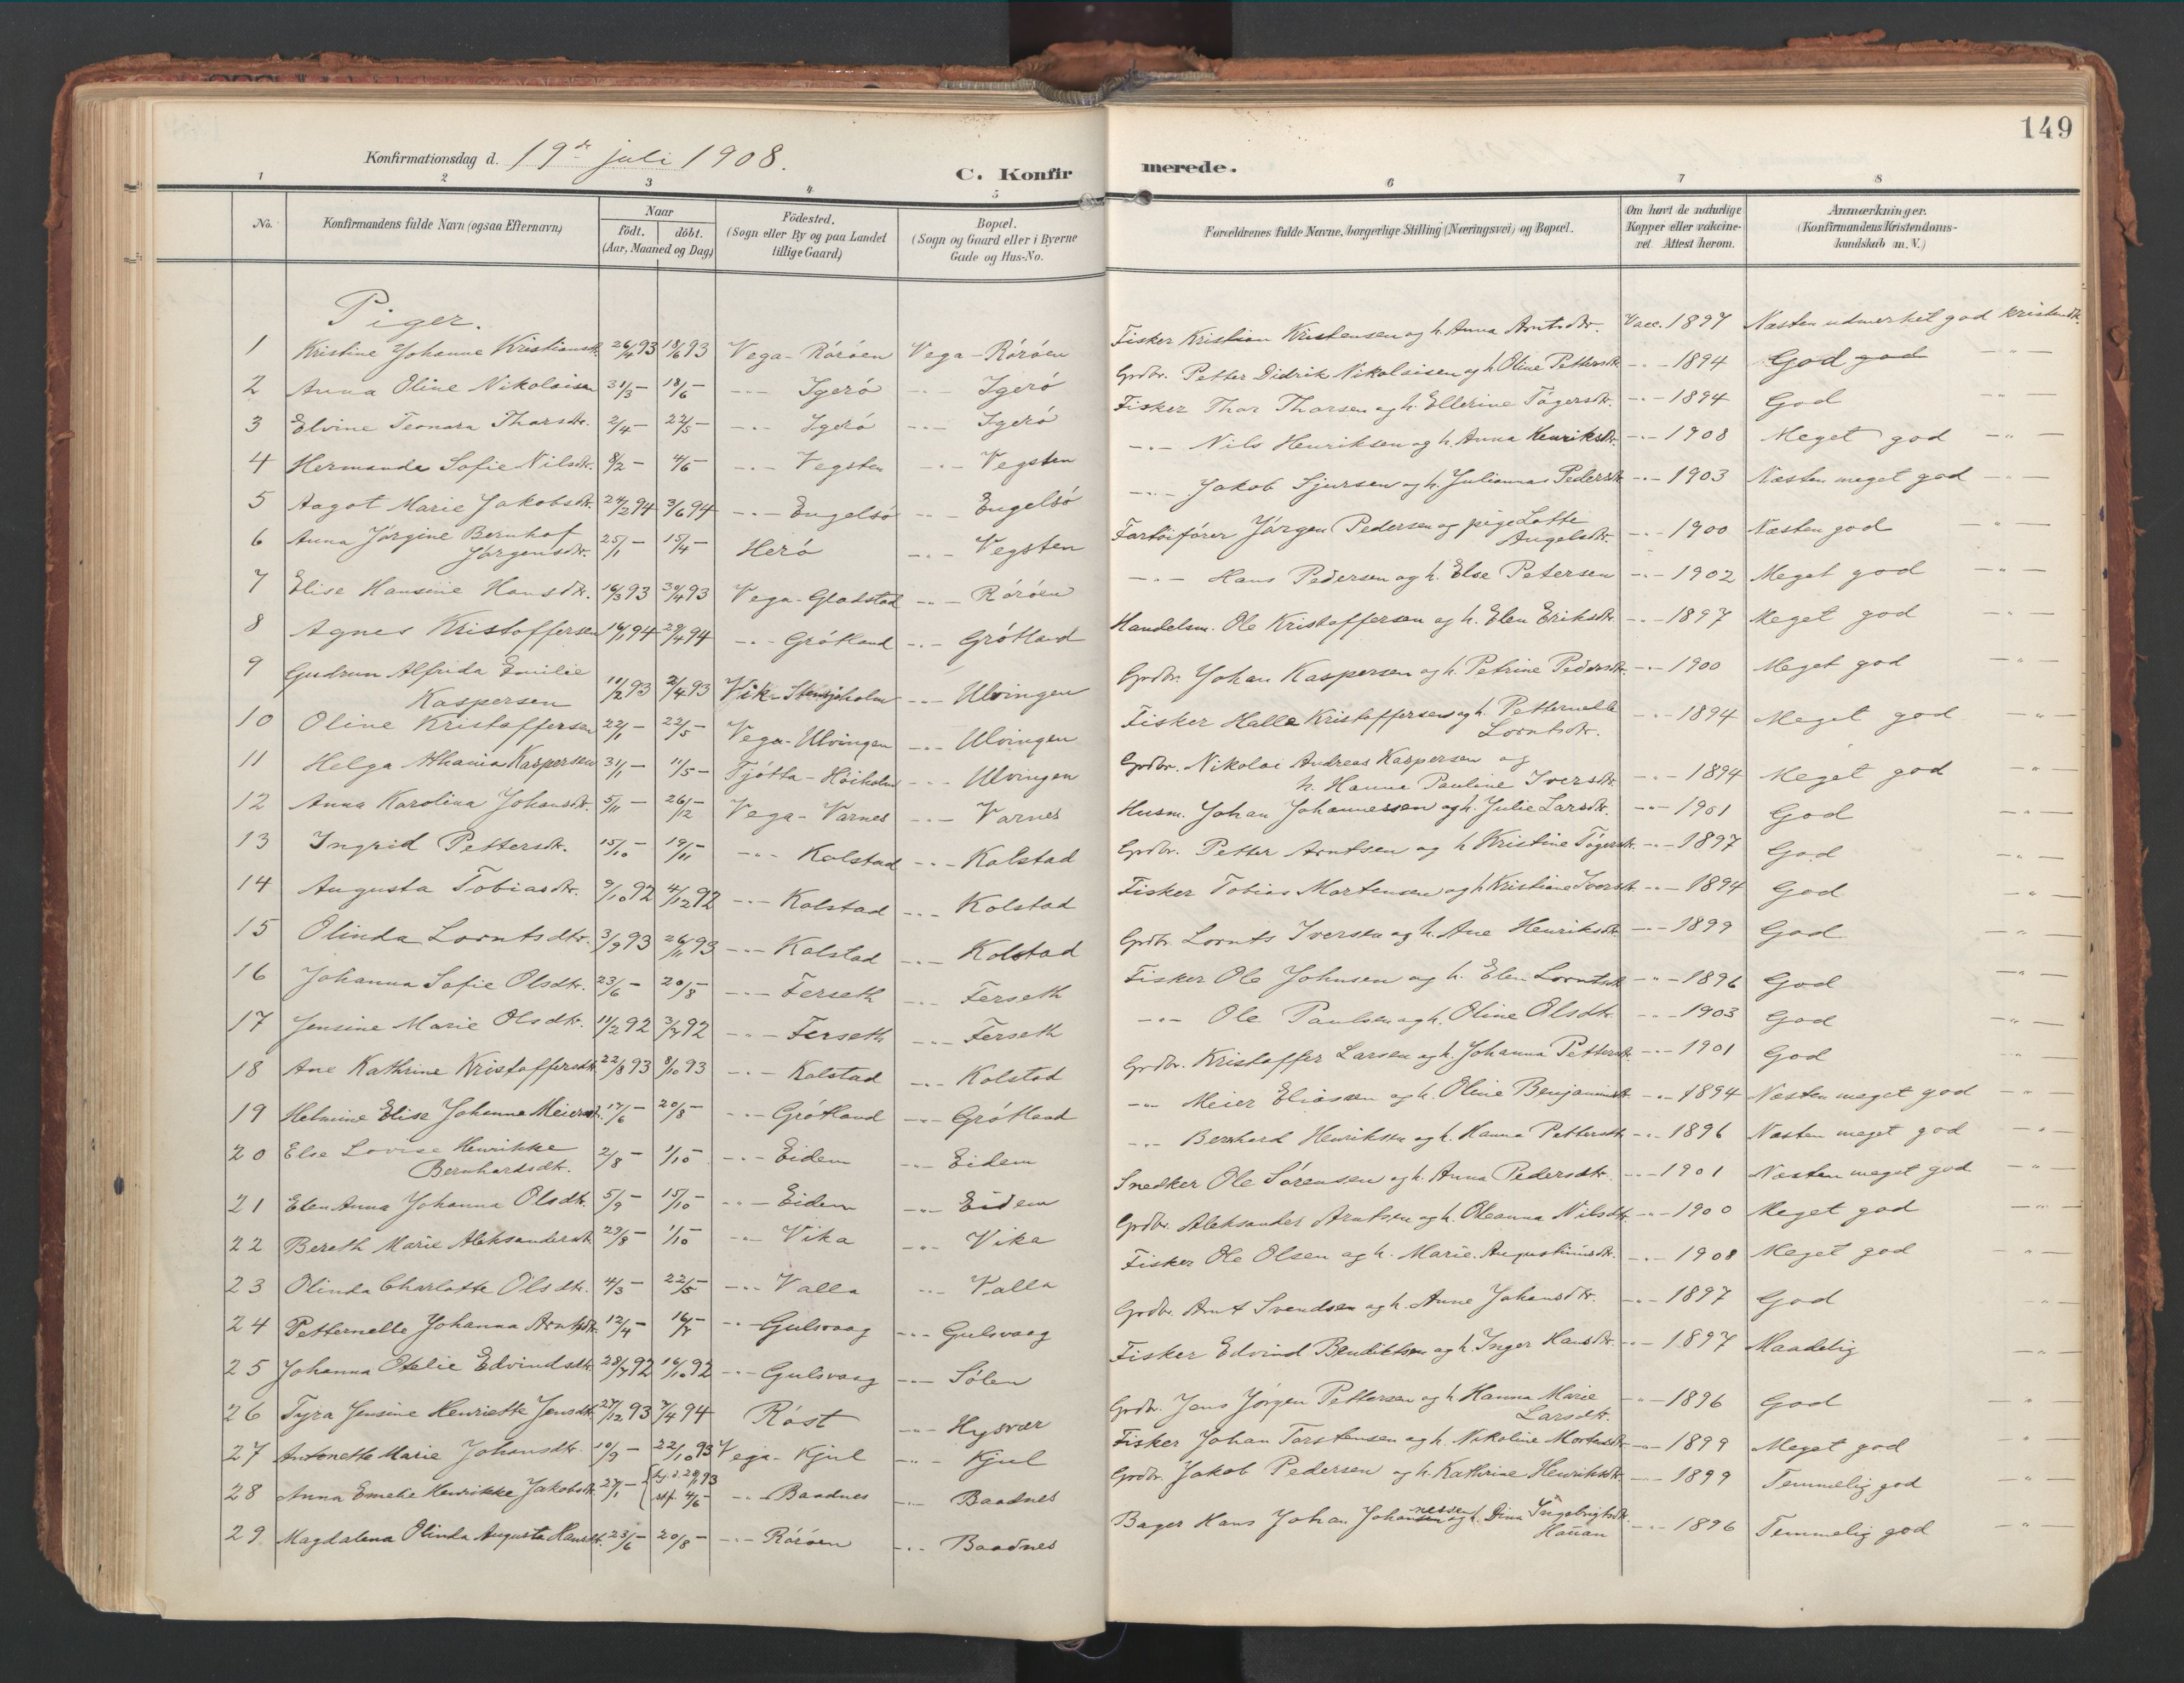 149
Konfirmationsdag d. 19de juli 1908.
C. Konfirmerede.
1 2 3 4 5 6 7 8
No. Konfirmandens fulde Navn (ogsaa Efternavn) Naar født. døbt. (Aar, Maaned og Dag) Födested. (Sogn eller By og paa Landet tillige Gaard) Bopæl. (Sogn og Gaard eller i Byerne Gade og Hus-No. Forældrenes fulde Navne, borgerlige Stilling (Næringsvei) og Bopæl. Om havt de naturlige Kopper eller vakcineret. Attest herom. Anmærkninger. (Konfirmandens Kristendomskundskab m. V.)
Piger.
1 Kristine Johanne Kristiansdtr. 26/4 93 18/6 93 Vega - Röröen Vega - Röröen Fisker Kristian Kristensen og h. Anna Arntsdtr. Vacc. 1897 Næsten udmerket god kristendk.
2 Anna Oline Nikolaisen 31/3 — 18/6 — -"- Igerö -"- Igerö Grdbr. Petter Didrik Nikolaisen og h. Oline Pettersdtr. -"- 1894 God god -"-
3 Elvine Teonara Thorsdtr. 2/4 — 22/5 — -"- Igerö -"- Igerö Fisker Thor Thorsen og h. Ellerine Tögersdtr. -"- 1894 God -"-
4 Hermanda Sofie Nilsdtr. 8/2 — 4/6 — -"- Vegsten -"- Vegsten -"- Nils Henriksen og h. Anna Henriksdtr. -"- 1908 Meget god -"-
5 Aagot Marie Jakobsdtr. 24/2 94 3/6 94 -"- Engelsö -"- Engelsö -"- Jakob Sjursen og h. Julianna Pedersdtr. -"- 1903 Næsten meget god -"-
6 Anna Jörgine Bernhof Jörgensdtr. 25/1 — 15/4 — Herö -"- Vegsten Fartöiförer Jörgen Pedersen og pige Lotte Angelsdtr. -"- 1900 Næsten god "
7 Elise Hansine Hansdtr. 16/3 93 30/4 93 Vega - Gladstad -"- Röröen -"- Hans Pedersen og h. Else Petersen -"- 1902 Meget god -"-
8 Agnes Kristoffersen 16/1 94 29/4 94 -"- Grötland -"- Grötland Handelsm. Ole Kristoffersen og h. Elen Eriksdtr. -"- 1897 Meget god "
9 Gudrun Alfrida Emilie Kaspersen 11/2 93 2/4 93 Vik - Stensjoholm -"- Ulvingen Grdbr. Johan Kaspersen og h. Petrine Pedersdtr. -"- 1900 Meget god -"-
10 Oline Kristoffersen 22/1 — 22/5 — Vega - Ulvingen -"- Ulvingen Fisker Halle Kristoffersen og h. Petternelle Lorntsdtr. -"- 1894 Meget god -"-
11 Helga Athania Kaspersen 31/1 — 11/5 — Tjötta - Höiholm -"- Ulvingen Grdbr. Nikolai Andreas Kaspersen og h. Hanna Pauline Iversdtr. -"- 1894 Meget god -"-
12 Anna Karolina Johansdtr. 5/11 — 26/12 — Vega - Varnes -"- Varnes Husm. Johan Johannessen og h. Julie Larsdtr. -"- 1901 God -"-
13 Ingrid Pettersdtr. 15/10 — 19/11 — -"- Kolstad -"- Kolstad Grdbr. Petter Arntsen og h Kristine Tögersdtr. -"- 1897 God -"-
14 Augusta Tobiasdtr. 9/10 92 4/12 92 -"- Kolstad -"- Kolstad Fisker Tobias Mortensen og h Kristiane Iversdtr -"- 1894 God -"-
15 Olinda Lorntsdtr. 3/9 93 26/11 93 -"- Kolstad -"- Kolstad Grdbr. Lornts Iversen og h. Ane Henriksdtr -"- 1899 God -"-
16 Johanna Sofie Olsdtr. 23/6 — 20/8 — -"- Ferseth -"- Ferseth Fisker Ole Johnsen og h. Elen Lorntsdtr -"- 1896 God -"-
17 Jensine Marie Olsdtr. 11/2 92 3/7 92 -"- Ferseth -"- Ferseth -"- Ole Paulsen og h. Oline Olsdtr. -"- 1903 God -"-
18 Ane Kathrine Kristoffersdtr 22/8 93 8/10 93 -"- Kolstad -"- Kolstad Grdbr. Kristoffer Larsen og h. Johanna Pettersdtr. -"- 1901 God -"-
19 Helmine Elise Johanna Meiersdtr. 17/6 — 20/8 — -"- Grötland -"- Grötland -"- Meier Eliassen og h. Oline Benjaminsdtr -"- 1894 Næsten meget god -"-
20 Else Lovise Henrikke Bernhardsdtr. 2/8 — 1/10 — -"- Eidem -"- Eidem -"- Bernhard Henriksen og h. Hanna Pettersdtr -"- 1896 Næsten meget god -"-
21 Elen Anna Johanna Olsdtr. 5/9 — 15/10 — -"- Eidem -"- Eidem Snedker Ole Sörensen og h. Anna Pedersdtr. -"- 1901 Næsten meget god -"-
22 Bereth Marie Aleksandersdtr 29/8 — 1/10 — -"- Vika -"- Vika Grdbr. Aleksander Arntsen og h. Oleanna Nilsdtr. -"- 1900 Meget god -"-
23 Olinda Charlotte Olsdtr. 4/3 — 22/5 — -"- Valla -"- Valla Fisker Ole Olsen og h. Marie Augustinusdtr. -"- 1908 Meget god "
24 Petternelle Johanna Arntsdtr. 12/4 — 16/7 — -"- Gulsvaag -"- Gulsvaag Grdbr. Arnt Svendsen og h. Anne Johansdtr. -"- 1897 God -"-
25 Johanna Otelie Edvindsdtr. 28/7 92 16/10 92 -"- Gulsvaag -"- Sölen Fisker Edvind Bendiktsen og h. Inger Hansdtr. -"- 1897 Maadelig -"-
26 Tyra Jensine Henriette Jensdtr. 27/12 93 7/4 94 Röst -"- Hysvær Grdbr. Jens Jörgen Pettersen og h Hanna Marie Larsdtr. -"- 1896 God "
27 Antonette Marie Johansdtr. 10/9 — 22/10 93 Vega - Kjul -"- Kjul Fisker Johan Torstensen og h. Nikoline Mortensdtr -"- 1899 Meget god "
28 Anna Emelie Henrikke Jakobsdtr. 27/1 — 93 st.f. 4/6 — -"- Baadnes -"- Baadnes Grdbr. Jakob Pedersen og h. Kathrine Henriksdtr. -"- 1899 Temmelig god -"-
29 Magdalena Olinda Augusta Hansdtr. 23/6 — 20/8 — -"- Röröen -"- Baadnes Bager Hans Johan Johannessen og h. Dina Ingebrigtsdtr. Hanan -"- 1896 Temmelig god -"-